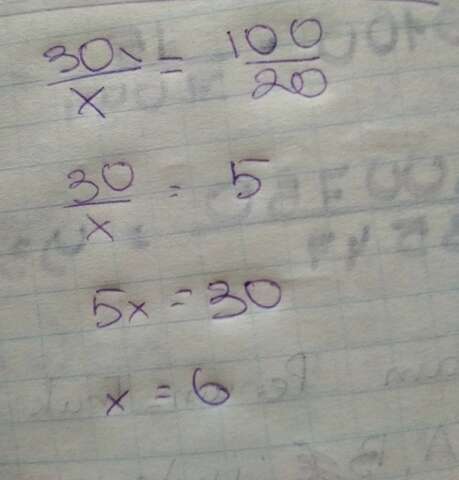 30/x = 100/20
30/x = 5
5x = 30
x = 6